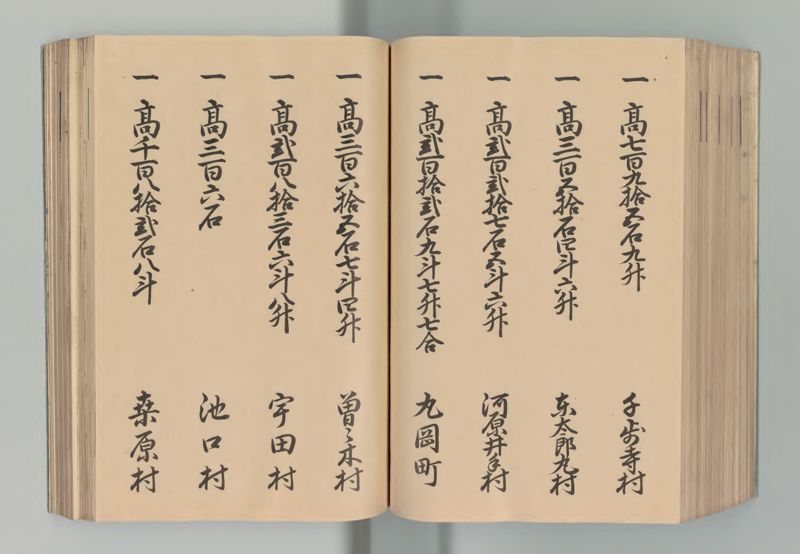 一 髙七百九拾五石九升 千歩寺村
一 髙三百五拾石四斗六升 東太郎丸村
一 髙弐百弐拾七石五斗六升 河原井手村
一 髙弐百拾弐石九斗七升七合 丸岡町
一 髙三百六拾五石七斗四升 曽々木村
一 髙弐百八拾三石六斗八升 宇田村
一 髙三百六石 池口村
一 髙千百八拾弐石八斗 桑原村